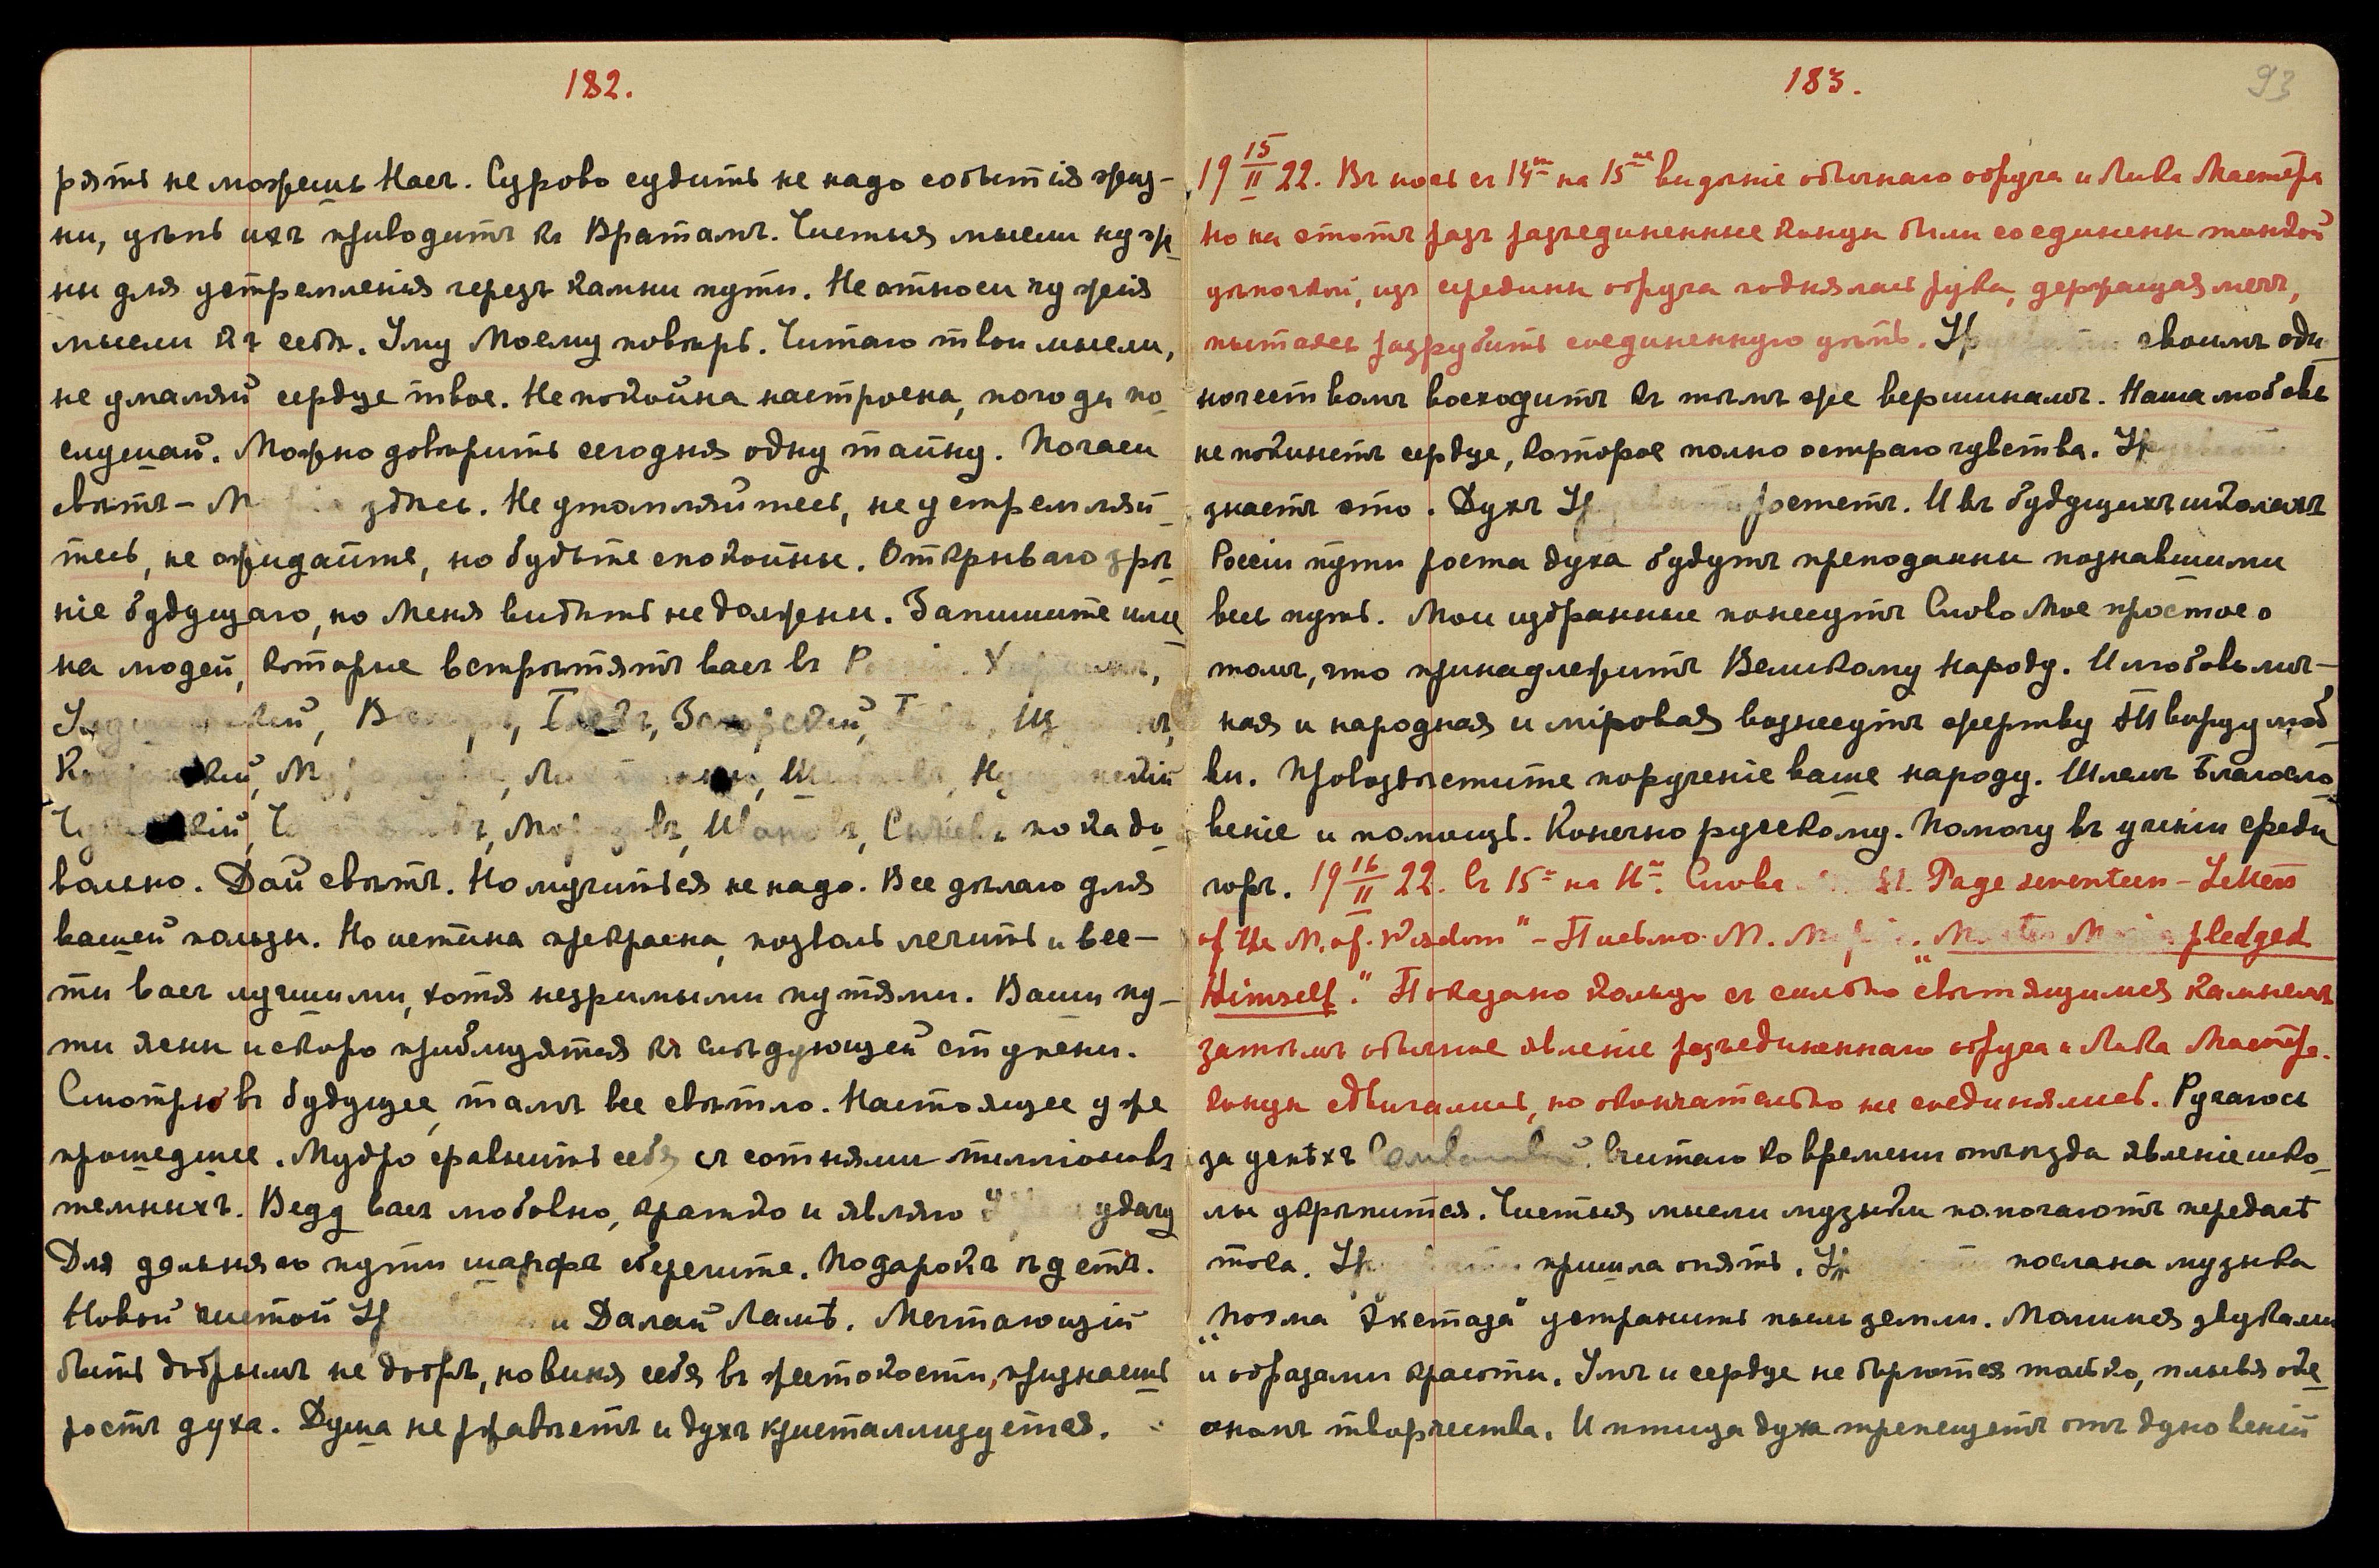 182.
рять не можешь Насъ. Сурово судить не надо событія жиз-
ни, цѣпь ихъ приводитъ къ Вратамъ. Чистыя мысли нуж-
ны для устремленія черезъ камни пути. Не относи чужія
мысли къ себѣ. Уму Моему повѣрь. Читаю твои мысли,
не умаляй сердце твое. Не покойна настроена, погоди по-
слушай. Можно довѣрить сегодня одну тайну. Погаси
свѣтъ – М здѣсь. Не утомляйтесь, не устремляй-
тесь, не ожидайте, но будьте спокойны. Открываю зрѣ-
ніе будущаго, но Меня видѣть не должны. Запишите име-
на людей, которые встрѣтятъ васъ въ
Морозовъ, Ивановъ, пока до-
вольно. Дай свѣтъ. Но мучиться не надо. Все дѣлаю для
вашей пользы. Но истина прекрасна, позволь лечить и вес-
ти васъ лучшими, хотя незримыми путями. Ваши пу-
ти ясны и скоро приблизятся къ слѣдующей ступени.
Смотрю въ будущее, тамъ все свѣтло. Настоящее уже
прошедшее. Мудро сравнить себя съ сотнями милліоновъ
темныхъ. Веду васъ любовно, кратко и являю удачу
Для дальняго пути шарфъ сберегите. Подарокъ ѣдетъ.
Новой чистой и Далай Ламѣ. Мечтающій
быть добрымъ не добръ, но виня себя въ жестокости, признаешь
ростъ духа. Душа не ржавѣетъ и духъ кристаллизуется.
183.
93
19 15/II 22. Въ ночь съ 14го на 15ое видѣніе обычнаго обруча и Лика Мастера
но на этотъ разъ разъединенные концы были соединены тонкой
цѣпочкой, изъ средины обруча поднялась рука, держащая мечъ,
пытаясь разрубить соединенную цѣпь. своимъ оди-
ночествомъ восходитъ къ тѣмъ же вершинамъ. Наша любовь
не покинетъ сердце, которое полно остраго чувства.
знаетъ это. Духъ ростетъ. И въ будущихъ школахъ
Россіи пути роста духа будутъ преподаны познавшими
весь путь. Мои избранные понесутъ Слово Мое простое о
томъ, что принадлежитъ Великому Народу. И любовь лич-
ная и народная и міровая вознесутъ жертву Творцу люб-
ви. Провозвѣстите порученіе ваше народу. Шлемъ Благосло-
веніе и помощь. Конечно русскому. Помогу въ ученіи среди
горъ. 19 16/II 22. Съ 15го на 16ое. Слова Page seventeen – Letters
of the M. of. Wisdom" – Письмо М. „Master pledged
Himself." Показано кольцо съ сильно свѣтящимся камнемъ
затѣмъ обычное явленіе разъединеннаго обруча и Лика Мастера.
концы сдвигались, но окончательно не соединялись. Ручаюсь
за успѣхъ Считаю ко времени отъѣзда явленіе шко-
лы укрѣпится. Чистыя мысли музыки помогаютъ передачѣ
тока. пришла опять. послана музыка
„Поэма Экстаза" устранить пыль земли. Молимся звуками
и образами красоты. Умъ и сердце не борются только, плывя
океаномъ творчества. И птица духа трепещетъ отъ дуновеній